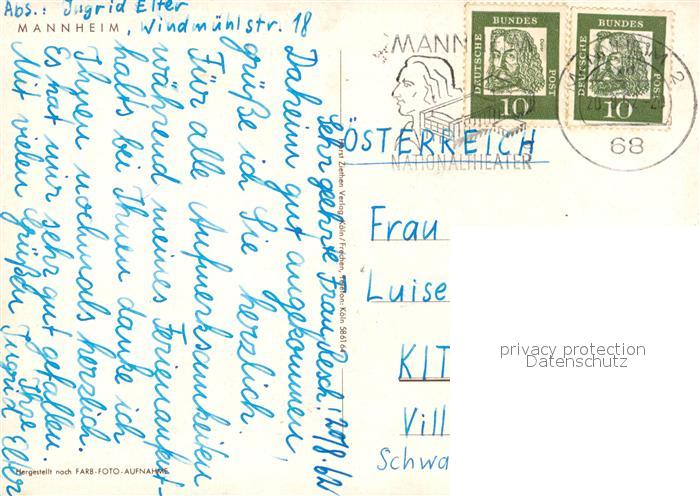 Abs.: Ingrid Elter
MANNHEIM, Windmühlstr. 18
Sehr geehrte Frau Resch! 20/8. 62
Daheim gut angekommen,
grüße ich Sie herzlich.
Für alle Aufmerksamkeiten
während meines Ferienaufent-
halts bei Ihnen danke ich
Ihnen nochmals herzlich.
Es hat mir sehr gut gefallen.
Mit vielen Grüßen Ihre
Ingrid Elter
Hergestellt nach FARB-FOTO-AUFNAHME
Horst Ziethen Verlag, Köln/Frechen, Telefon: Köln 586164
MANN
NATIONALTHEATER
DEUTSCHE BUNDES POST
10
DEUTSCHE BUNDES POST
10
68
ÖSTERREICH
Frau
Luise
KIT
Vill
Schwa
privacy protection
Datenschutz